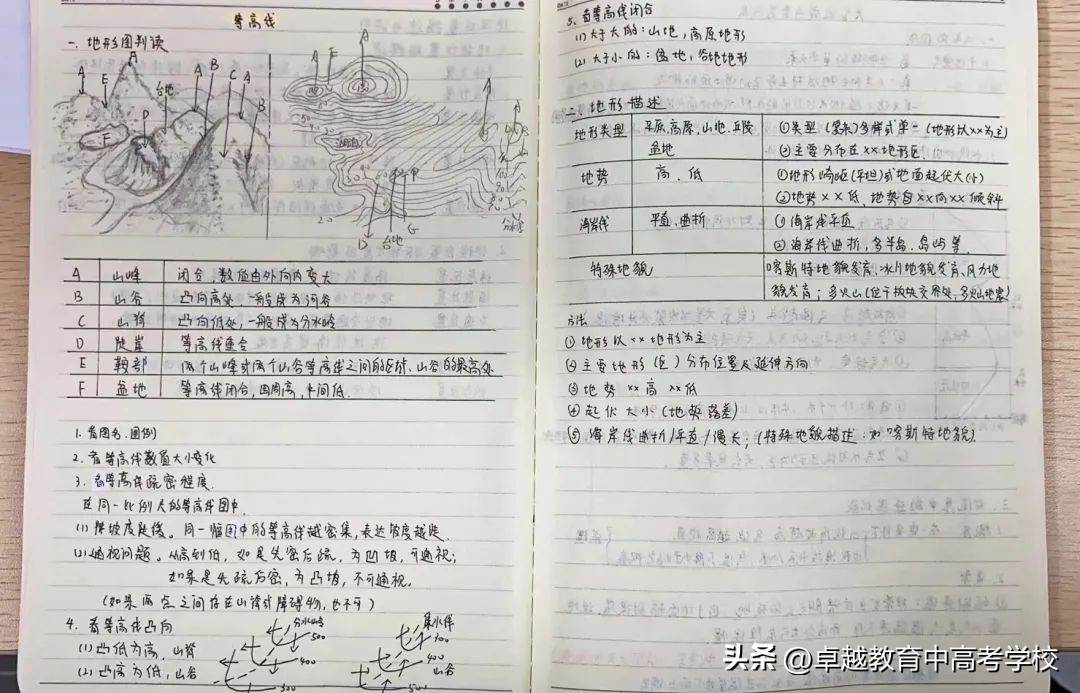 等高线
一、地形图判读
A
A E
A B C A
台地
B
D
E
F
A E
A
湖泊
A
分水岭
D 台地 G
A 山峰 闭合,数值由外向内变大
B 山谷 凸向高处,一般成为河谷
C 山脊 凸向低处,一般成为分水岭
D 陡崖 等高线重合
E 鞍部 两个山峰或两个山谷等高线之间的区域,山谷的最高处
F 盆地 等高线闭合,四周高,中间低.
1. 看图名.图例
2. 看等高线数值大小变化
3. 看等高线疏密程度.
在同一比例尺的等高线图中.
(1) 陡坡度陡缓。同一幅图中的等高线越密集,表达坡度越陡.
(2) 通视问题。从高到低,如是先密后疏,为凹坡,可通视;
如果是先疏后密,为凸坡,不可通视.
(如果两点之间存在山脊或障碍物,也不可)
4. 看等高线凸向
(1) 凸低为高,山脊
(2) 凸高为低,山谷
分水岭
500
400
300
集水线
400
山谷
500
5. 看等高线闭合
(1) 大于大的:山地,高原地形
(2) 大于小的:盆地,谷地地形
二、地形描述
地形类型 平原,高原,山地,丘陵 ①类型(复杂)多样或单一(地形以××为主)
盆地 ②主要分布在××地形区
地势 高、低 ①地形崎岖(平坦)或地面起伏大(小)
②地势××低,地势自××向××倾斜
海岸线 平直,曲折 ①海岸线平直
②海岸线曲折,多半岛、岛屿等.
特殊地貌 喀斯特地貌发育,冰川地貌发育,风力地
貌发育;多火山(位于板块交界处,多火山地震)
方法
①地形以××地形为主
②主要地形(区)分布位置及延伸方向
③地势××高××低
④起伏大小(地势落差)
⑤海岸线曲折/平直/漫长;(特殊地貌描述:如喀斯特地貌).
头条 @卓越教育中高考学校